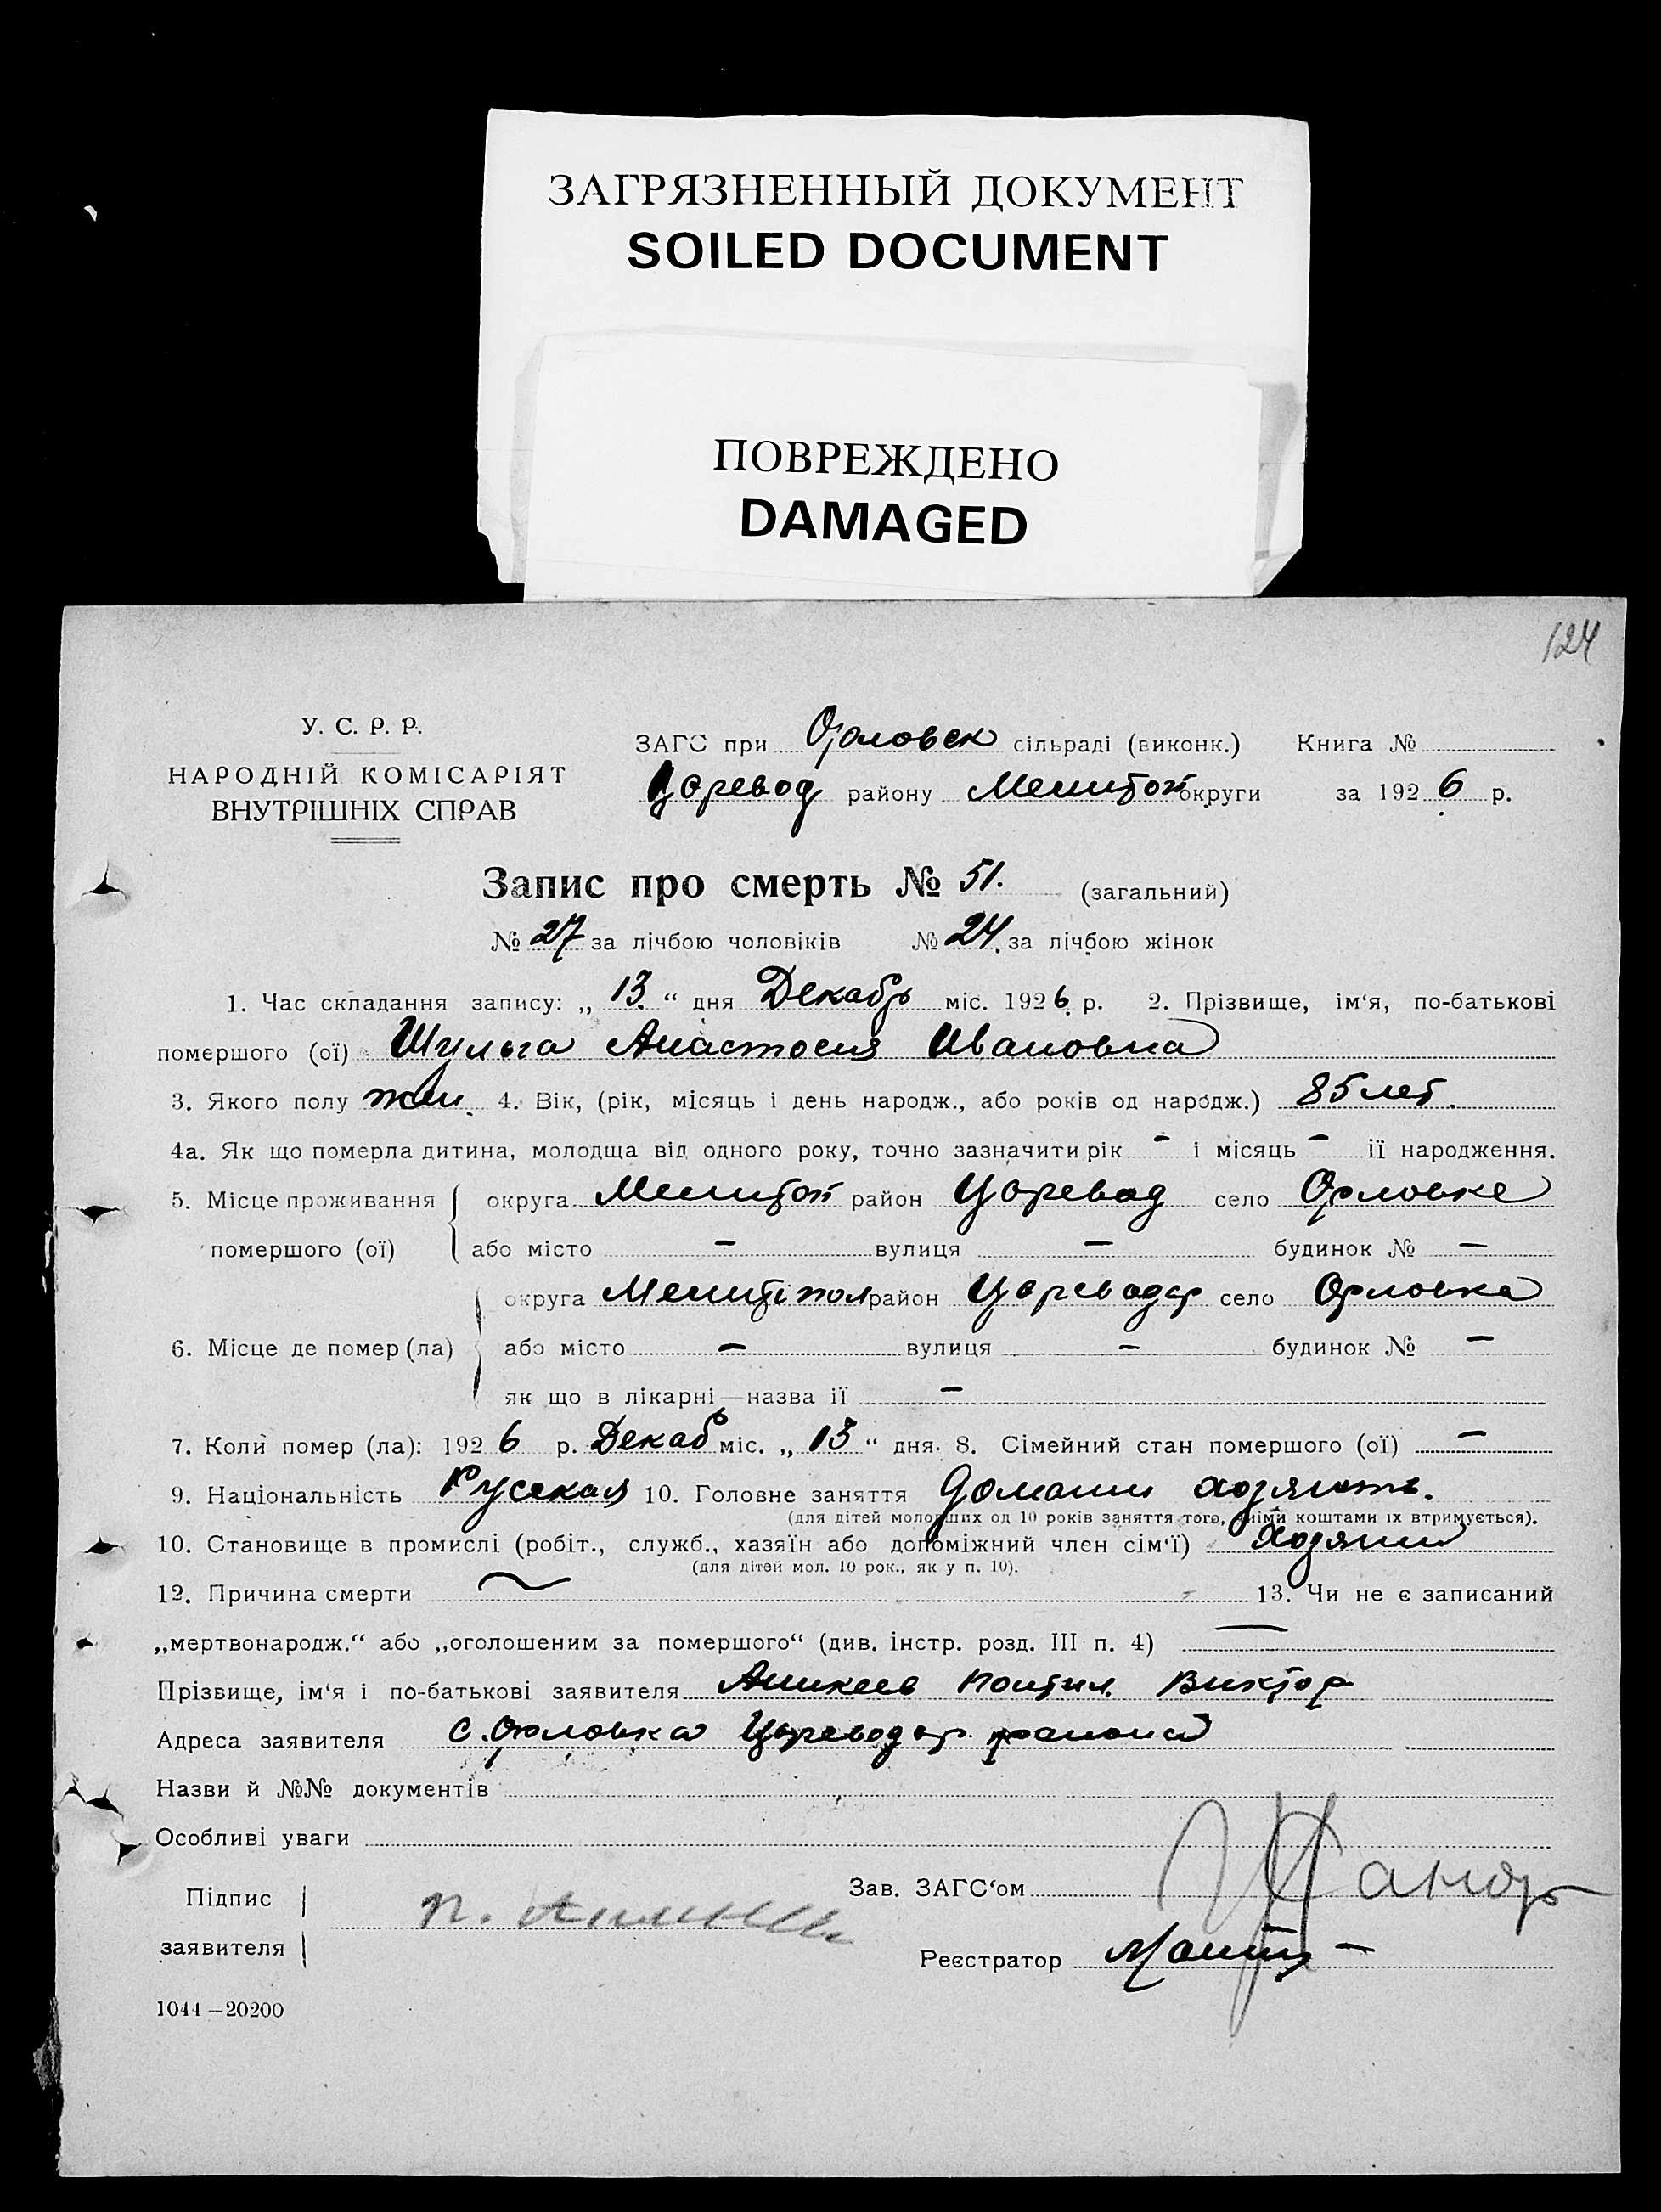 ЗАГРЯЗНЕННЫЙ ДОКУМЕНТ
SOILED DOCUMENT
ПОВРЕЖДЕНО
DAMAGED
124
У. С. Р. Р.
НАРОДНІЙ КОМІСАРІЯТ
ВНУТРІШНІХ СПРАВ
ЗАГС при Орловск сільраді (виконк.) Книга №
Царевод району Мелитоп округи за 1926 р.
Запис про смерть № 51. (загальний)
№ 27 за лічбою чоловіків № 24. за лічбою жінок
1. Час складання запису: „ 13. “ дня Декабр міс. 1926. р. 2. Прізвище, ім‘я, по-батькові
помершого (ої) Шульга Анастосия Ивановна
3. Якого полу жен. 4. Вік, (рік, місяць і день народж., або років од народж.) 85 лет.
4а. Як що померла дитина, молодща від одного року, точно зазначити рік - і місяць - її народження.
5. Місце проживання округа Мелитоп район Царевод село Орловке
помершого (ої) або місто — вулиця — будинок № —
округа Мелитопол район Цареводар село Орловка
6. Місце де помер (ла) або місто — вулиця — будинок № —
як що в лікарні—назва її —
7. Коли помер (ла): 1926 р. Декаб міс. „ 13 “ дня. 8. Сімейний стан помершого (ої) —
9. Національність Русская 10. Головне заняття Домашн хозяють.
(для дітей молодших од 10 років заняття того, чиїми коштами їх втримується).
10. Становище в промислі (робіт., служб., хазяїн або допоміжний член сім‘ї) Хозяин
(для дітей мол. 10 рок., як у п. 10).
12. Причина смерти ~ 13. Чи не є записаний
„мертвонародж.“ або „оголошеним за помершого“ (див. інстр. розд. III п. 4) —
Прізвище, ім‘я і по-батькові заявителя Аникеев Виктор
Адреса заявителя с. Орловка Цареводар. района
Назви й №№ документів
Особливі уваги
Підпис
заявителя
Зав. ЗАГС‘ом
Реєстратор
1044—20200